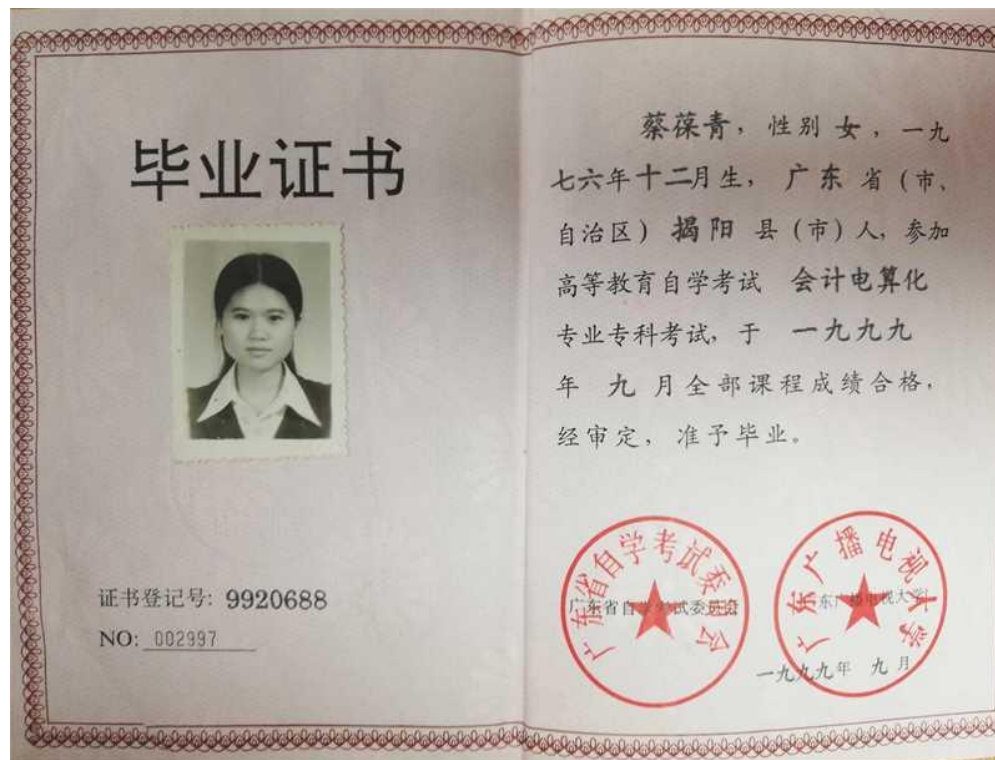 毕业证书
证书登记号: 9920688
NO: 002997
蔡葆青，性别 女，一九
七六年十二月生， 广东 省（市、
自治区）揭阳 县（市）人，参加
高等教育自学考试 会计电算化
专业专科考试，于 一九九九
年 九 月全部课程成绩合格，
经审定，准予毕业。
广东省自学考试委员会
广东省自学考试委员会
广东广播电视大学
广东广播电视大学
一九九九年 九 月